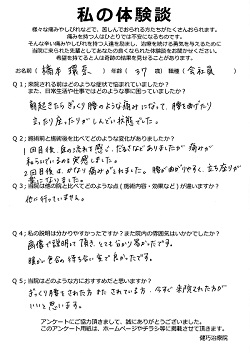 私の体験談
様々な痛みやしびれなどで、苦しんでおられる方たちがたくさんおられます。
痛みを持つ人はひとりでは不安になるものです。
そんな辛い痛みやしびれを持つ人達を励まし、治療を続ける勇気を与えるために
当院に来られた先輩としてあなたの良くなられた体験談をお聞かせください。
希望を持てる人とは奇跡の結果を見せることがあります。
お名前( 橋本 環奈 )年齢( 37 歳)職種( 会社員 )
Q1;来院される前はどのような症状で悩まれていましたか?
また、日常生活や仕事ではどのような事に困っていましたか?
朝起きたらぎっくり腰のような痛みになって、腰を曲げたり
立ったり座ったりがしんどい状態でした。
Q2;施術前と施術後を比べてどのような変化がありましたか?
1回目後、血の流れを感じ、だるさなどありましたが痛みが
和らいでいるのを実感しました。
2回目は、かなり痛みがとれました。腰が曲がりやすく、立ち座りが
楽になりました。
Q3;当院は他の院と比べてどのような点(施術内容・効果など)が違いますか?
他に行っていません。
Q4;私の説明は分かりやすかったですか?また院内の雰囲気はいかがでしたか?
画像で説明して頂き、とても分かり易かったです。
暖かい色合の待ち合い室で良かったです。
Q5;当院はどのような方におすすめだと思いますか?
ぎっくり腰をされた方、またされている方、今すぐ来院された方が
いいと思います。
アンケートにご協力頂きまして、誠にありがとうございました。
このアンケート用紙は、ホームページやチラシ等に掲載させて頂きます。
健巧治療院